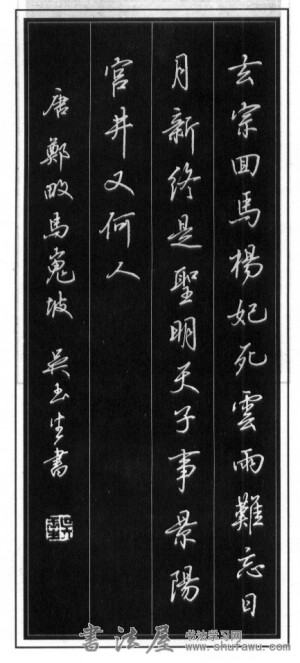 玄宗回馬楊妃死雲雨難忘日
月新終是聖明天子事景陽
宮井又何人
唐鄭畋馬嵬坡 吴玉生書
書法屋
书法学习网
www.shufawu.com